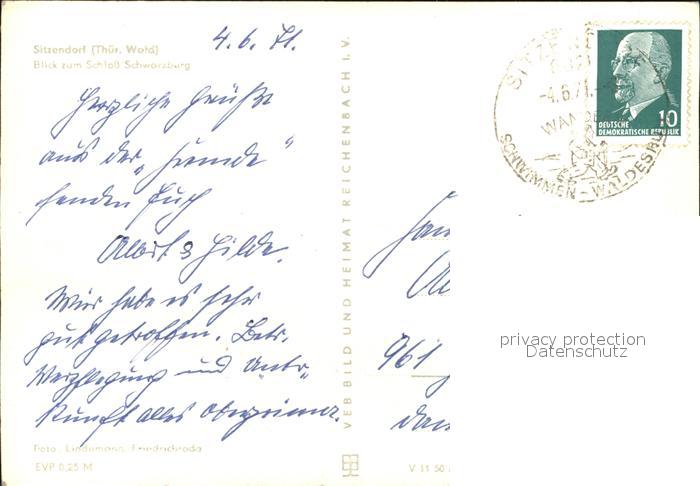 Sitzendorf (Thür. Wald)
Blick zum Schloß Schwarzburg
4.6.71.
Herzliche Grüße
aus der „Fremde“
senden Euch
Albert & Hilde.
Wir habe es sehr
gut getroffen. Betr.
Verpflegung und Unter-
kunft alles Oberprima.
Foto: Lindemann, Friedrichroda
EVP 0,25 M
VEB BILD UND HEIMAT REICHENBACH I. V.
V 11 50
SITZEN
-4.6.71.-
WANDE
SCHWIMMEN - WALDESRU
10
DEUTSCHE
DEMOKRATISCHE REPUBLIK
Fam
961
privacy protection
Datenschutz